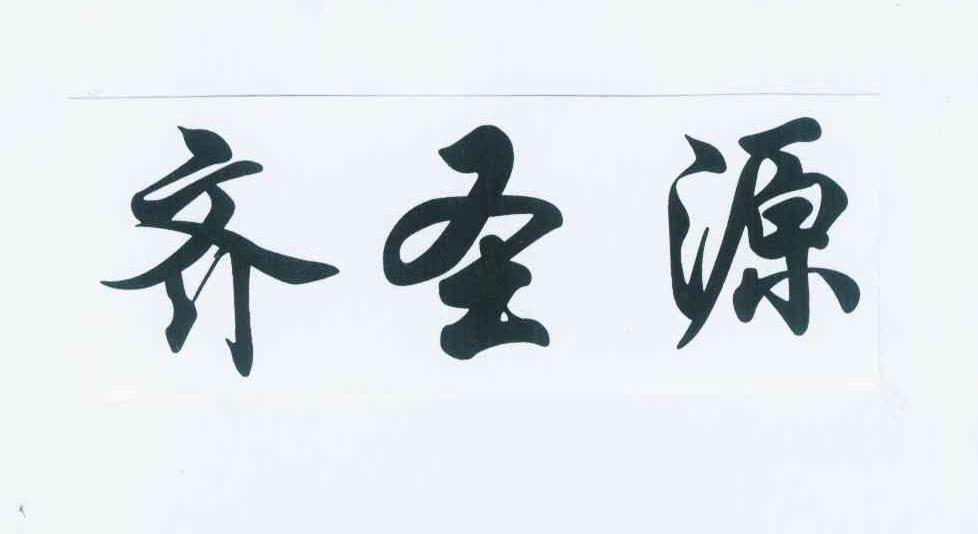 齐圣源